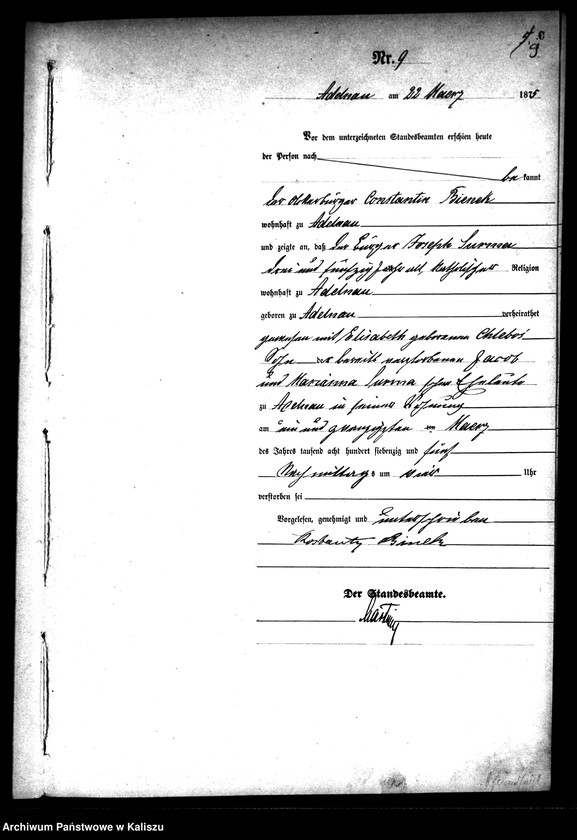 9
Nr. 9
Adelnau am 22 Maerz 1875
Vor dem unterzeichneten Standesbeamten erschien heute
der Person nach
be kannt
der Ackerbürger Constantin Bienek
wohnhaft zu Adelnau
und zeigte an, daß der Bürger Joseph Surma
drei und fünfzig Jahr alt, katholischer Religion
wohnhaft zu Adelnau
geboren zu Adelnau verheirathet
gewesen mit Elisabeth geborenen Chlebos
Sohn der bereits verstorbenen Jacob
und Marianna Surma Eheleute
zu Adelnau in seiner Wohnung
am ein und zwanzigsten Maerz
des Jahres tausend acht hundert siebenzig und fünf
Nachmittags um vier Uhr
verstorben sei
Vorgelesen, genehmigt und unterschrieben
Binek
Der Standesbeamte.
Archiwum Państwowe w Kaliszu